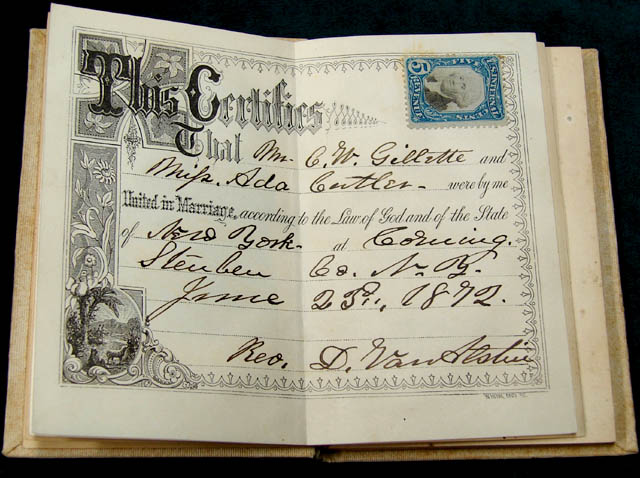 This Certifies
That Mr. C. W. Gillette and
Miss. Ada Cutler were by me
United in Marriage, according to the Law of God and of the State
of New York at Corning.
Steuben Co. N. Y.
June 1872.
Rev. D. Van Alstin
5
INTER
CENTS
REVENUE